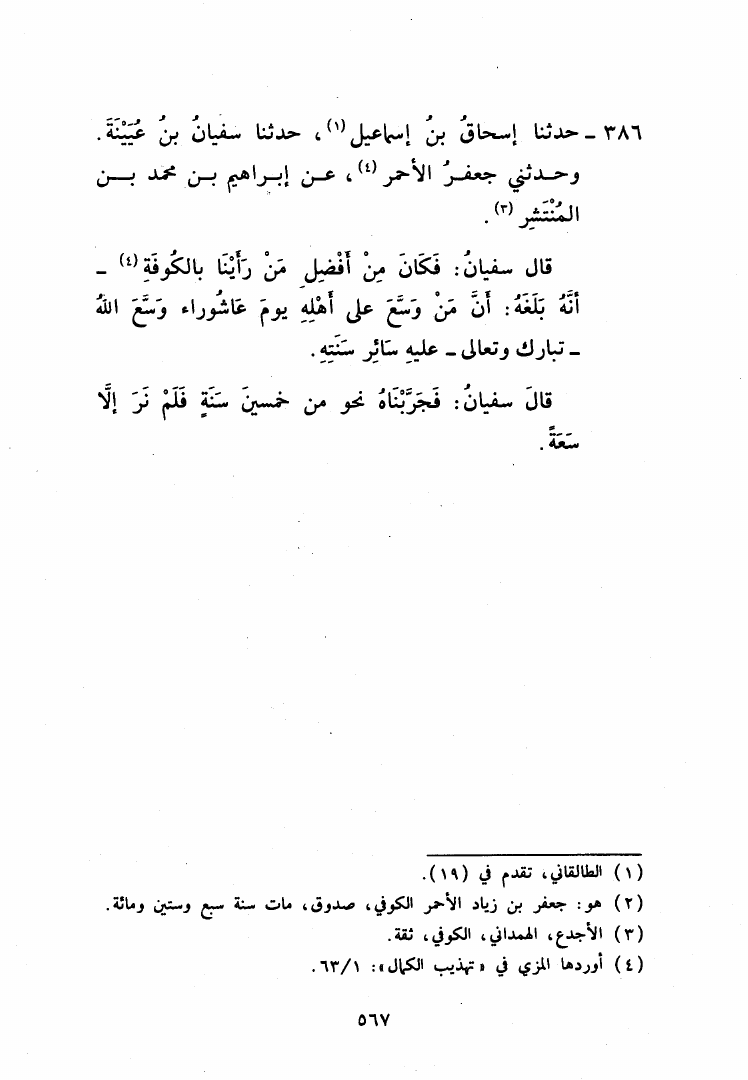 ٣٨٦ ـ حدثنا إسحاقُ بنُ إسماعيل(١)، حدثنا سفيانُ بنُ عُيَيْنَةَ.
وحـدثني جعفـرُ الأحمر(٤)، عـن إبـراهيم بـن محمد بـــن
المُنْتَشِرِ(٣).
قال سفيانُ: فَكَانَ مِنْ أَفْضلِ مَنْ رَأَيْنَا بالكُوفَةِ(٤) ـ
أنَّهُ بَلَغَهُ: أنَّ مَنْ وَسَّعَ على أهْلِهِ يومَ عَاشُوراء وَسَّعَ اللهُ
ـ تبارك وتعالى ـ عليهِ سَائِر سَنَتِهِ.
قالَ سفيانُ: فَجَرَّبْنَاهُ نحو من خمسينَ سَنَةٍ فَلَمْ نَرَ إلَّا
سَعَةً.
(١) الطالقاني، تقدم في (١٩).
(٢) هو: جعفر بن زياد الأحمر الكوفي، صدوق، مات سنة سبع وستين ومائة.
(٣) الأجدع، الهمداني، الكوفي، ثقة.
(٤) أوردها المزي في «تهذيب الكمال»: ٦٣/١.
٥٦٧